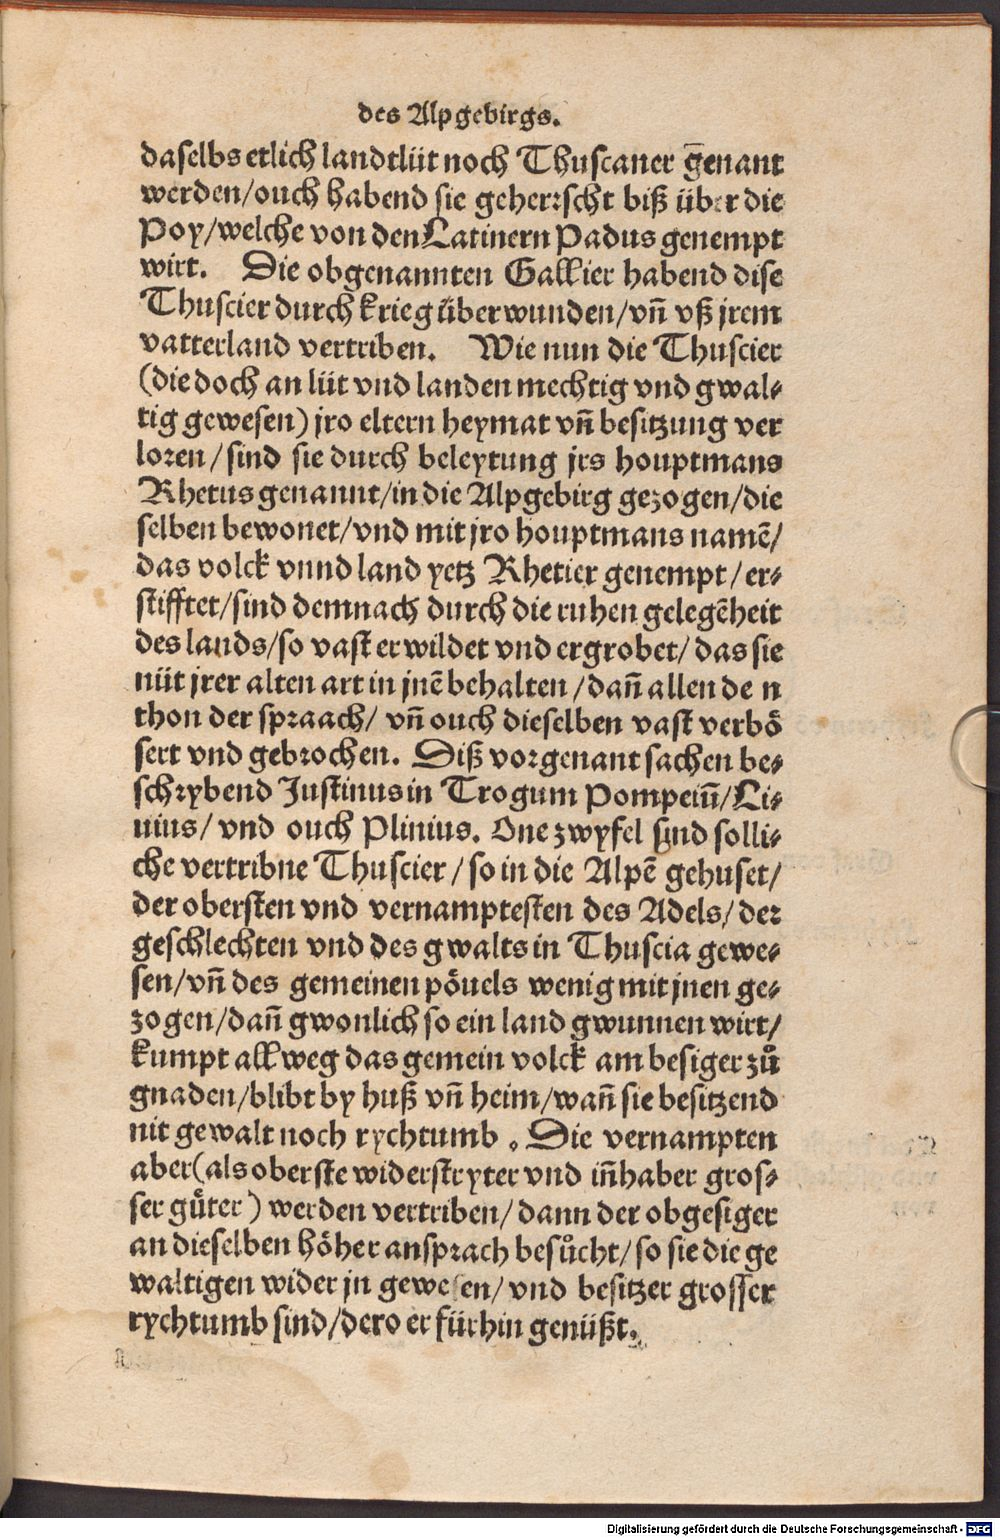 des Alpgebirgs.
daselbs etlich landtlüt noch Thuscaner g̅enant
werden/ouch habend sie geherꝛscht biß über die
Poy/welche von den Latinern Padus genempt
wirt. Die obgenannten Gallier habend dise
Thuscier durch krieg überwunden/vn̄ vß jrem
vatterland vertriben. Wie nun die Thuscier
(die doch an lüt vnd landen mechtig vnd gwal⸗
tig gewesen) jro eltern heymat vn̄ besitzung ver
loꝛen/sind sie durch beleytung jrs houptmans
Rhetus genannt/in die Alpgebirg gezogen/die
selben bewonet/vnd mit jro houptmans namē/
das volck vnnd land yetz Rhetier genempt/er⸗
stifftet/sind demnach durch die ruhen gelegēheit
des lands/so vast erwildet vnd ergrobet/das sie
nüt jrer alten art in jnē behalten/dañ allen de n
thon der spꝛaach/ vn̄ ouch dieselben vast verbö
sert vnd gebrochen. Diß voꝛgenant sachen be⸗
schꝛybend Justinus in Trogum Pompeiū/Li⸗
uius/ vnd ouch Plinius. One zwyfel sind solli⸗
che vertribne Thuscier/so in die Alpē gehuset/
der obersten vnd vernamptesten des Adels/deꝛ
geschlechten vnd des gwalts in Thuscia gewe⸗
sen/vn̄ des gemeinen pöuels wenig mit jnen ge⸗
zogen/dañ gwonlich so ein land gwunnen wirt/
kumpt allweg das gemein volck am besiger zů
gnaden/blibt by huß vn̄ heim/wañ sie besitzend
nit gewalt noch rychtumb. Die vernampten
aber(als oberste widerstryter vnd iñhaber gros⸗
ser gůter) werden vertriben/dann der obgesiger
an dieselben höher anspꝛach besůcht/so sie die ge
waltigen wider jn gewesen/vnd besitzer grosser
rychtumb sind/dero er fürhin genüßt.
Digitalisierung gefördert durch die Deutsche Forschungsgemeinschaft - DFG